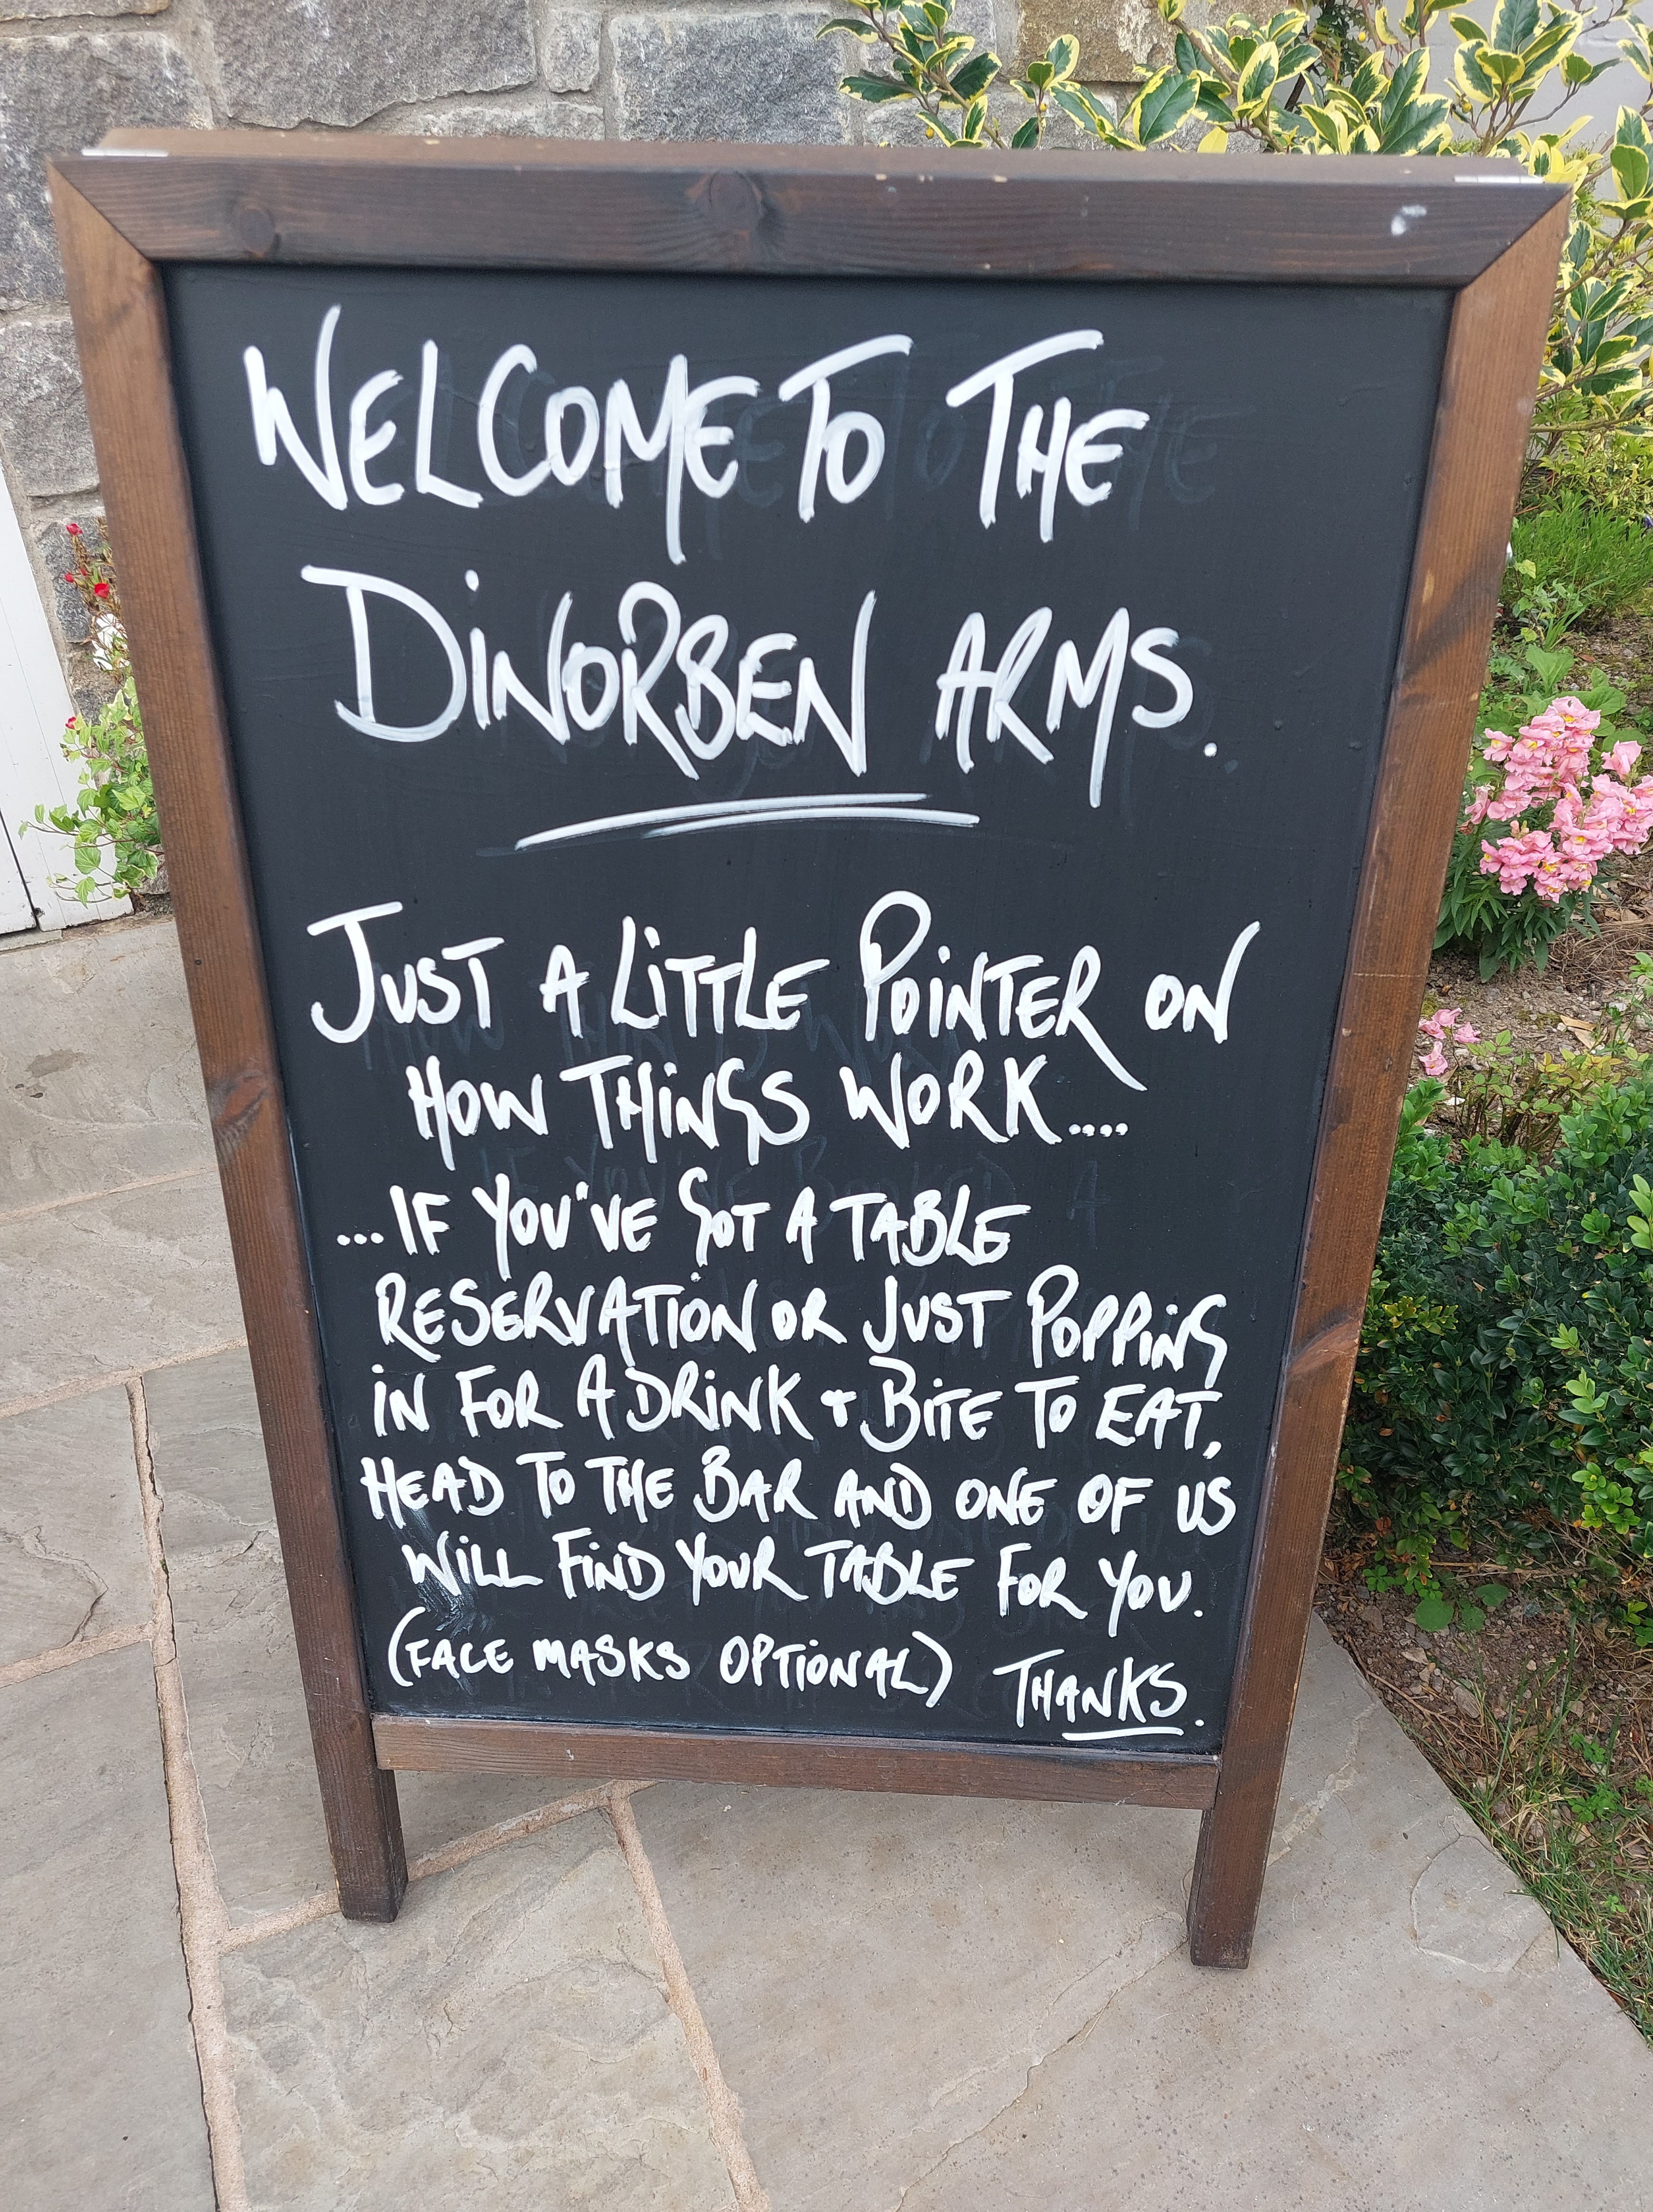 WELCOME TO THE
DINORBEN ARMS.
JUST A LITTLE POINTER ON
HOW THINGS WORK....
...IF YOU'VE GOT A TABLE
RESERVATION OR JUST POPPING
IN FOR A DRINK + BITE TO EAT,
HEAD TO THE BAR AND ONE OF US
WILL FIND YOUR TABLE FOR YOU.
(FACE MASKS OPTIONAL) THANKS.